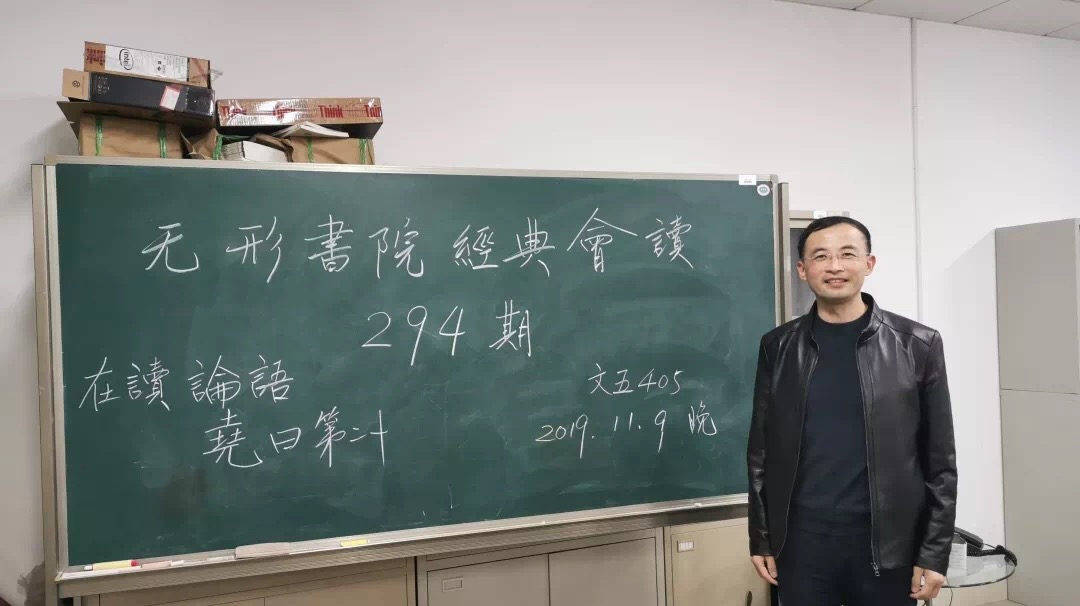 intel
Think Think Think
无形書院經典會讀
294期
在讀論語
堯曰第二十
文五405
2019.11.9 晚